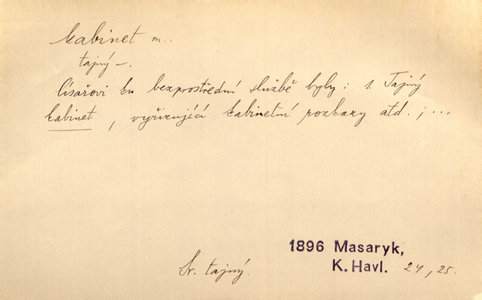 kabinet m.
tajný –.
Císařovi ku bezprostřední službě byly: 1. Tajný
kabinet, vyřizující kabinetní rozkazy atd.; ...
1896 Masaryk,
K. Havl. 24, 25.
Sr. tajný.